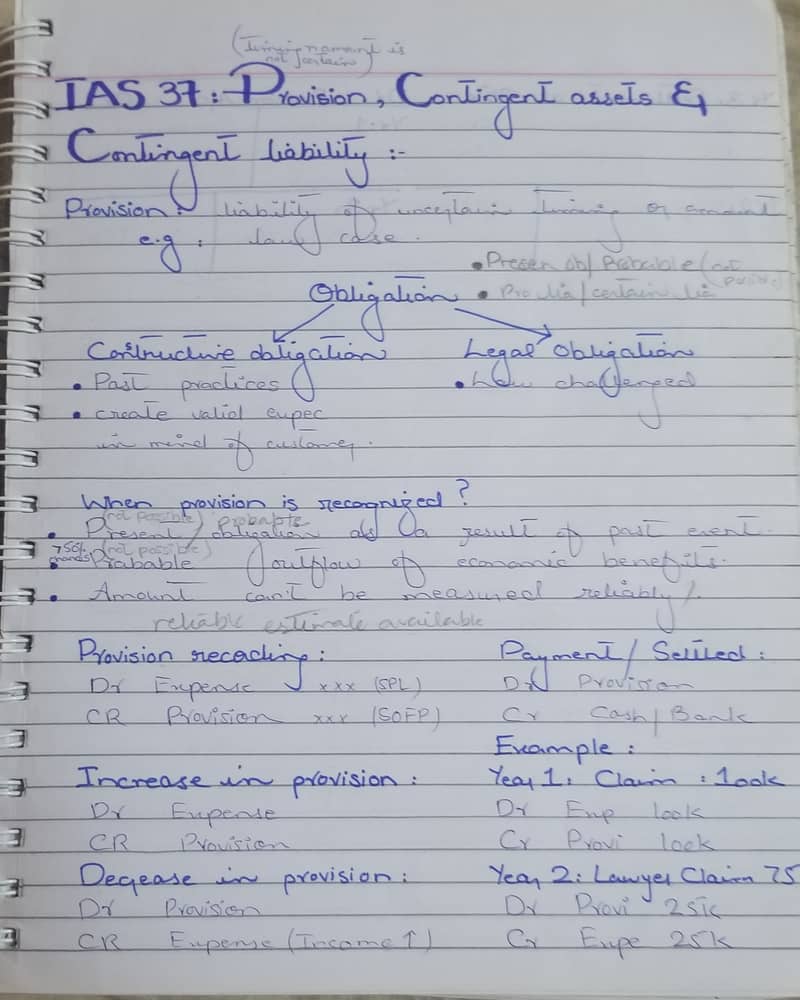 (Timing n amount is
not certain)
IAS 37: Provision, Contingent assets &
Contingent liability :-
Provision : liability of uncertain timing or amount
e.g : law case.
• Presen ob/ Probable (not possible)
Obligation • Pro lia/certain lia
Constructive obligation Legal Obligation
• Past practices • Law challenged
• create valid expec
in mind of customer.
When provision is recognized ?
(not possible) Probable
• Present/obligation as a result of past event.
(not possible)
Probable outflow of economic benefits.
• Amount can't be measured reliably/
reliable estimate available
Provision recording : Payment/Settled :
Dr Expense xxx (SPL) Dr Provision
CR Provision xxx (SOFP) Cr Cash/Bank
Example :
Increase in provision : Year 1: Claim : 100k
Dr Expense Dr Exp 100k
CR Provision Cr Provi 100k
Decease in provision : Year 2: Lawyer Claim 75
Dr Provision Dr Provi 25k
CR Expense (Income↑) Cr Expe 25k